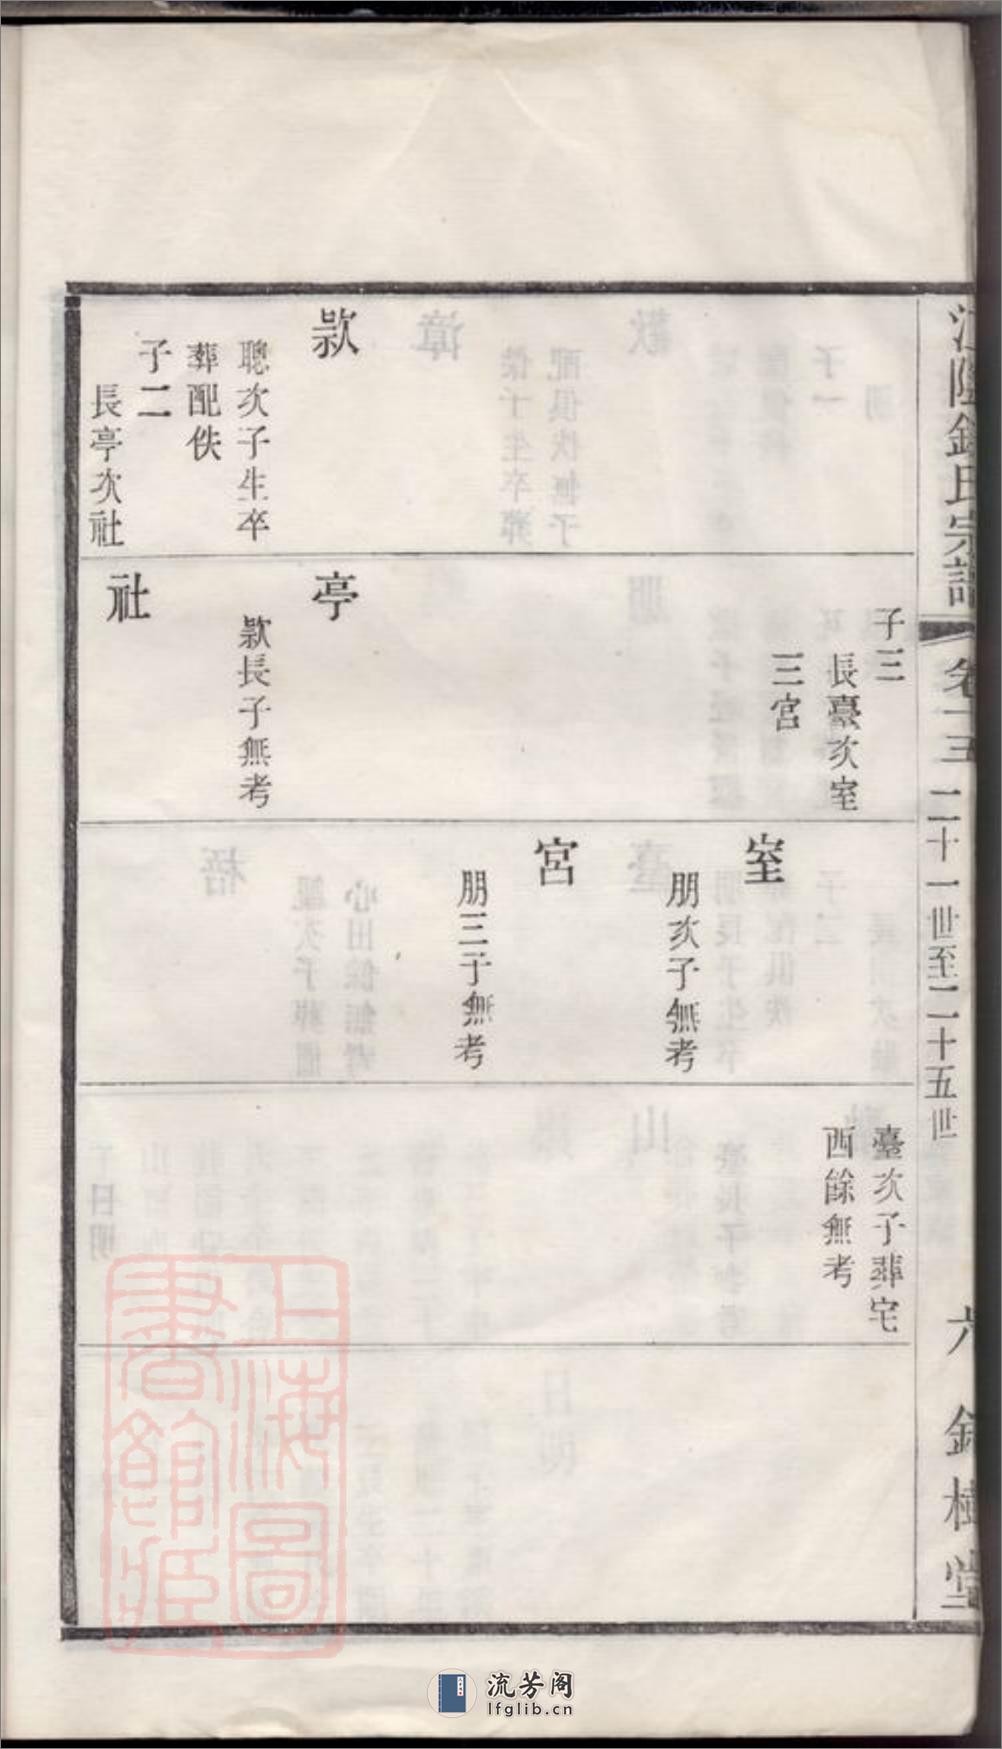 江陰錢氏宗譜
卷十三
二十一世至二十五世
六
錦樹堂
款
聰次子生卒
葬配佚
子二
長亭次社
子三
長臺次室
三宮
亭
款長子無考
社
室
朋次子無考
宮
朋三子無考
臺次子葬宅
西餘無考
上海圖書館藏
流芳阁
lfglib.cn